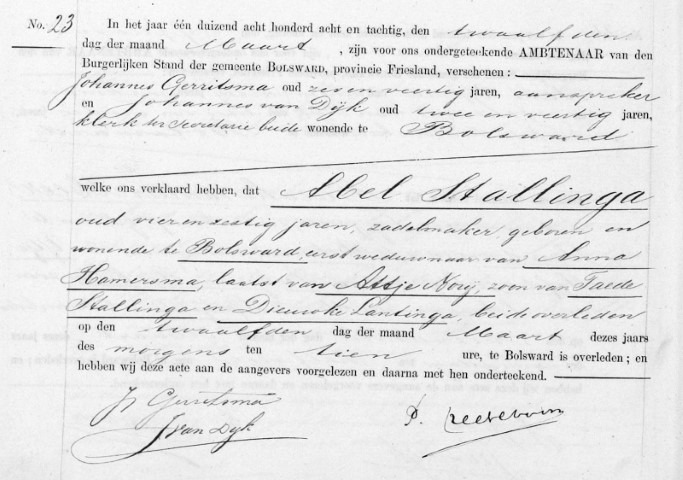 No. 23
In het jaar één duizend acht honderd acht en tachtig, den twaalfden
dag der maand Maart, zijn voor ons ondergeteekende AMBTENAAR van den
Burgerlijken Stand der gemeente BOLSWARD, provincie Friesland, verschenen:
Johannes Gerritsma oud zeven veertig jaren, aanspreker
en Johannes van Dijk oud twee en veertig jaren,
klerk ter secretarie beide wonende te Bolsward
welke ons verklaard hebben, dat Abel Stallinga
oud vier en zestig jaren, zadelmaker, geboren en
wonende te Bolsward, eerst weduwnaar van Anna
Hamersma, laatst van Attje Nouij, zoon van Taede
Stallinga en Dieuwke Lantinga, beide overleden
op den twaalfden dag der maand Maart dezes jaars
des morgens ten tien ure, te Bolsward is overleden; en
hebben wij deze acte aan de aangevers voorgelezen en daarna met hen onderteekend.
J Gerritsma
J van Dyk